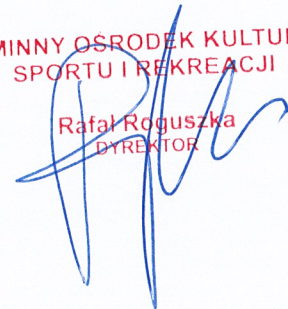 MINNY OŚRODEK KULTUR
SPORTU I REKREACJI
Rafał Roguszka
DYREKTOR